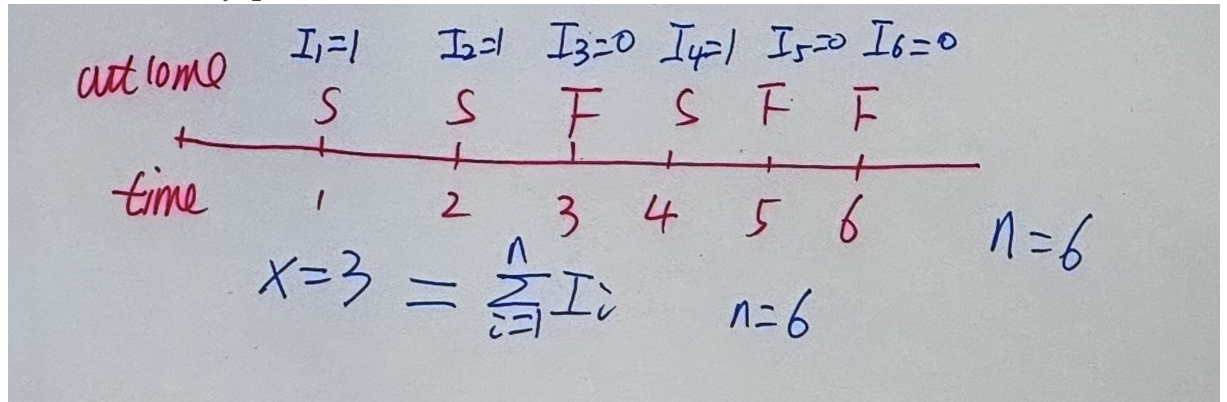 I₁=1 I₂=1 I₃=0 I₄=1 I₅=0 I₆=0
outcome
S S F S F F
time 1 2 3 4 5 6
n=6
x=3 = \sum_{i=1}^{n} I_i n=6